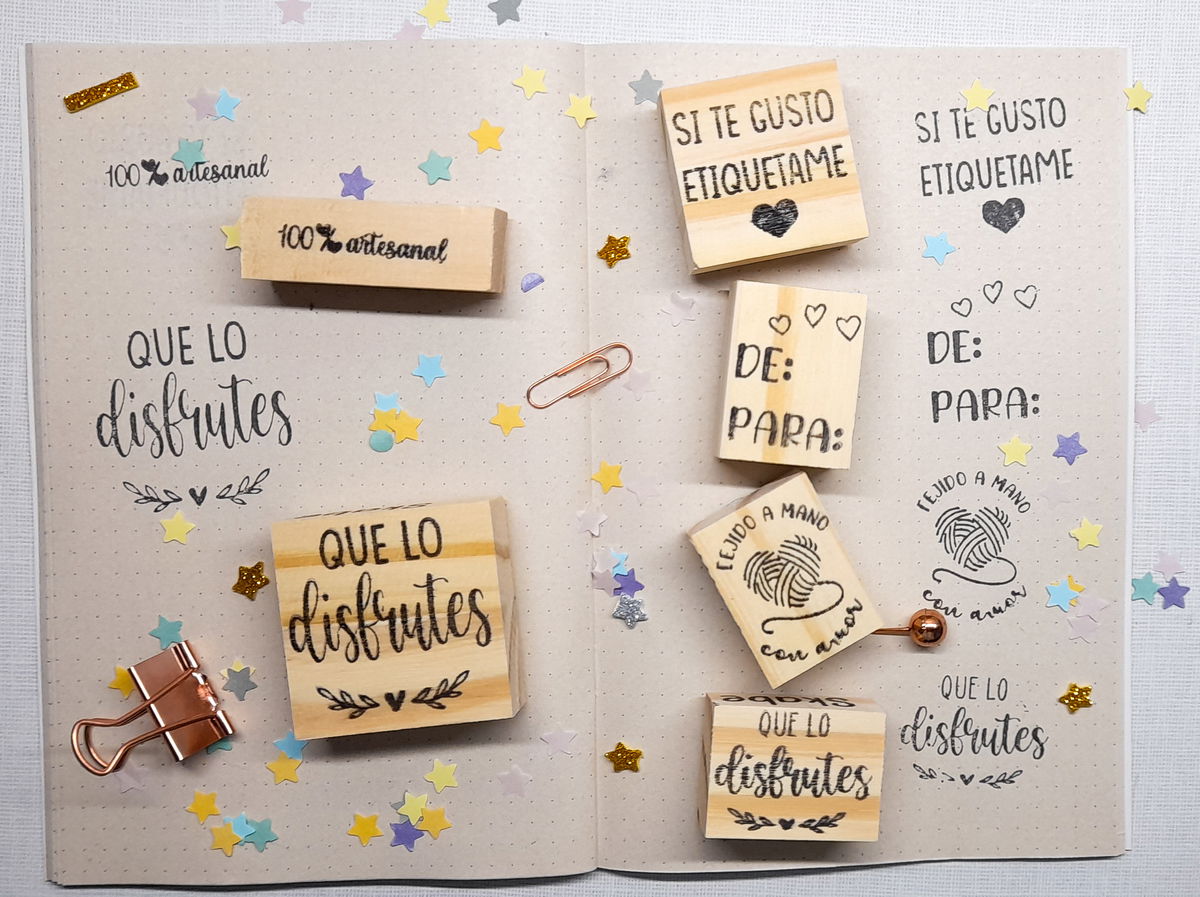 100% artesanal
100% artesanal
QUE LO
disfrutes
QUE LO
disfrutes
SI TE GUSTO
ETIQUETAME
SI TE GUSTO
ETIQUETAME
DE:
PARA:
DE:
PARA:
TEJIDO A MANO
con amor
TEJIDO A MANO
con amor
QUE LO
disfrutes
QUE LO
disfrutes